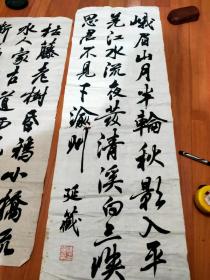 峨眉山月半輪秋影入平
羌江水流夜發清溪向三峽
思君不見下渝州
枯藤老樹昏鴉小橋流
水人家古道西